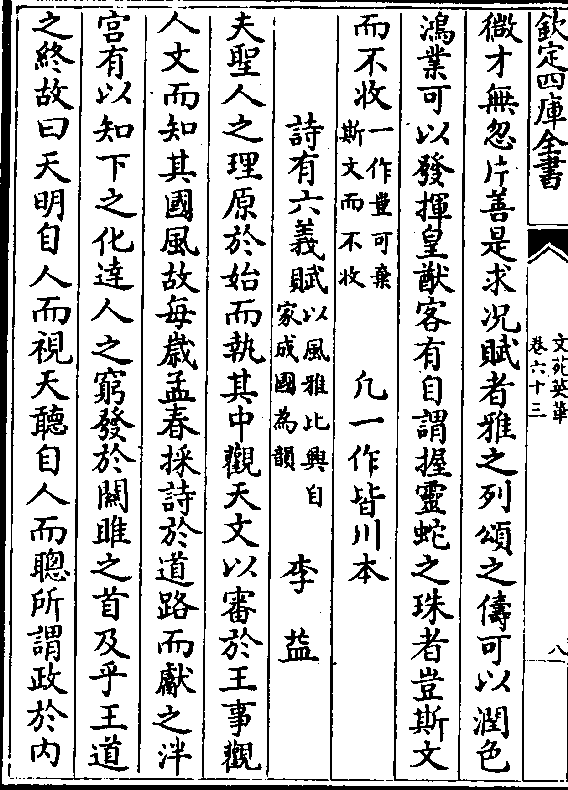 欽定四庫全書
文苑英華
卷六十三
八
微才無忽片善是求况賦者雅之列頌之儔可以潤色
鴻業可以發揮皇猷客有自謂握靈蛇之珠者豈斯文
而不收一作豈可棄斯文而不收 凡一作皆川本
詩有六義賦以風雅比興自家成國為韻 李益
夫聖人之理原於始而執其中觀天文以審於王事觀
人文而知其國風故每歲孟春採詩於道路而獻之泮
宮有以知下之化達人之窮發於關雎之首及乎王道
之終故曰天明自人而視天聽自人而聰所謂政於内